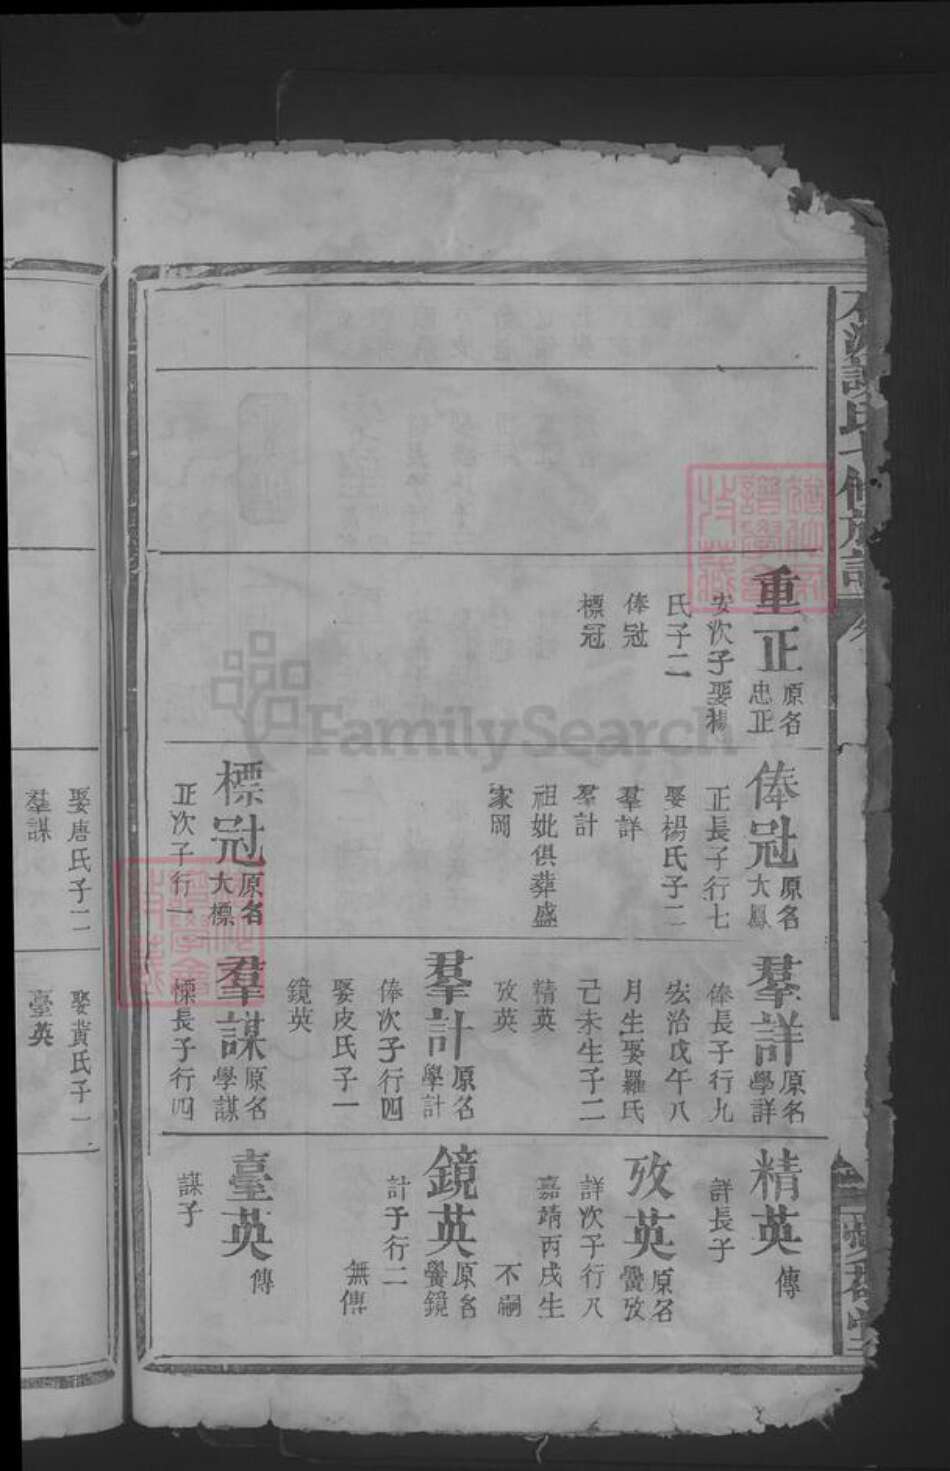 氏七修族譜
重正 原名忠正
安次子娶楊
氏子二
俸冠
標冠
俸冠 原名大鳳
正長子行七
娶楊氏子二
羣詳
羣計
祖妣俱葬盛
家岡
標冠 原名大標
正次子行一
娶唐氏子一
羣謀
羣詳 原名學詳
俸長子行九
弘治戊午八
月生娶羅氏
己未生子二
精英
攷英
羣計 原名學計
俸次子行四
娶皮氏子一
鏡英
羣謀 原名學謀
標長子行四
娶黃氏子一
臺英
精英 傳
詳長子
攷英 原名黌攷
詳次子行八
嘉靖丙戌生
不嗣
鏡英 原名黌鏡
計子行二
無傳
臺英 傳
謀子
FamilySearch